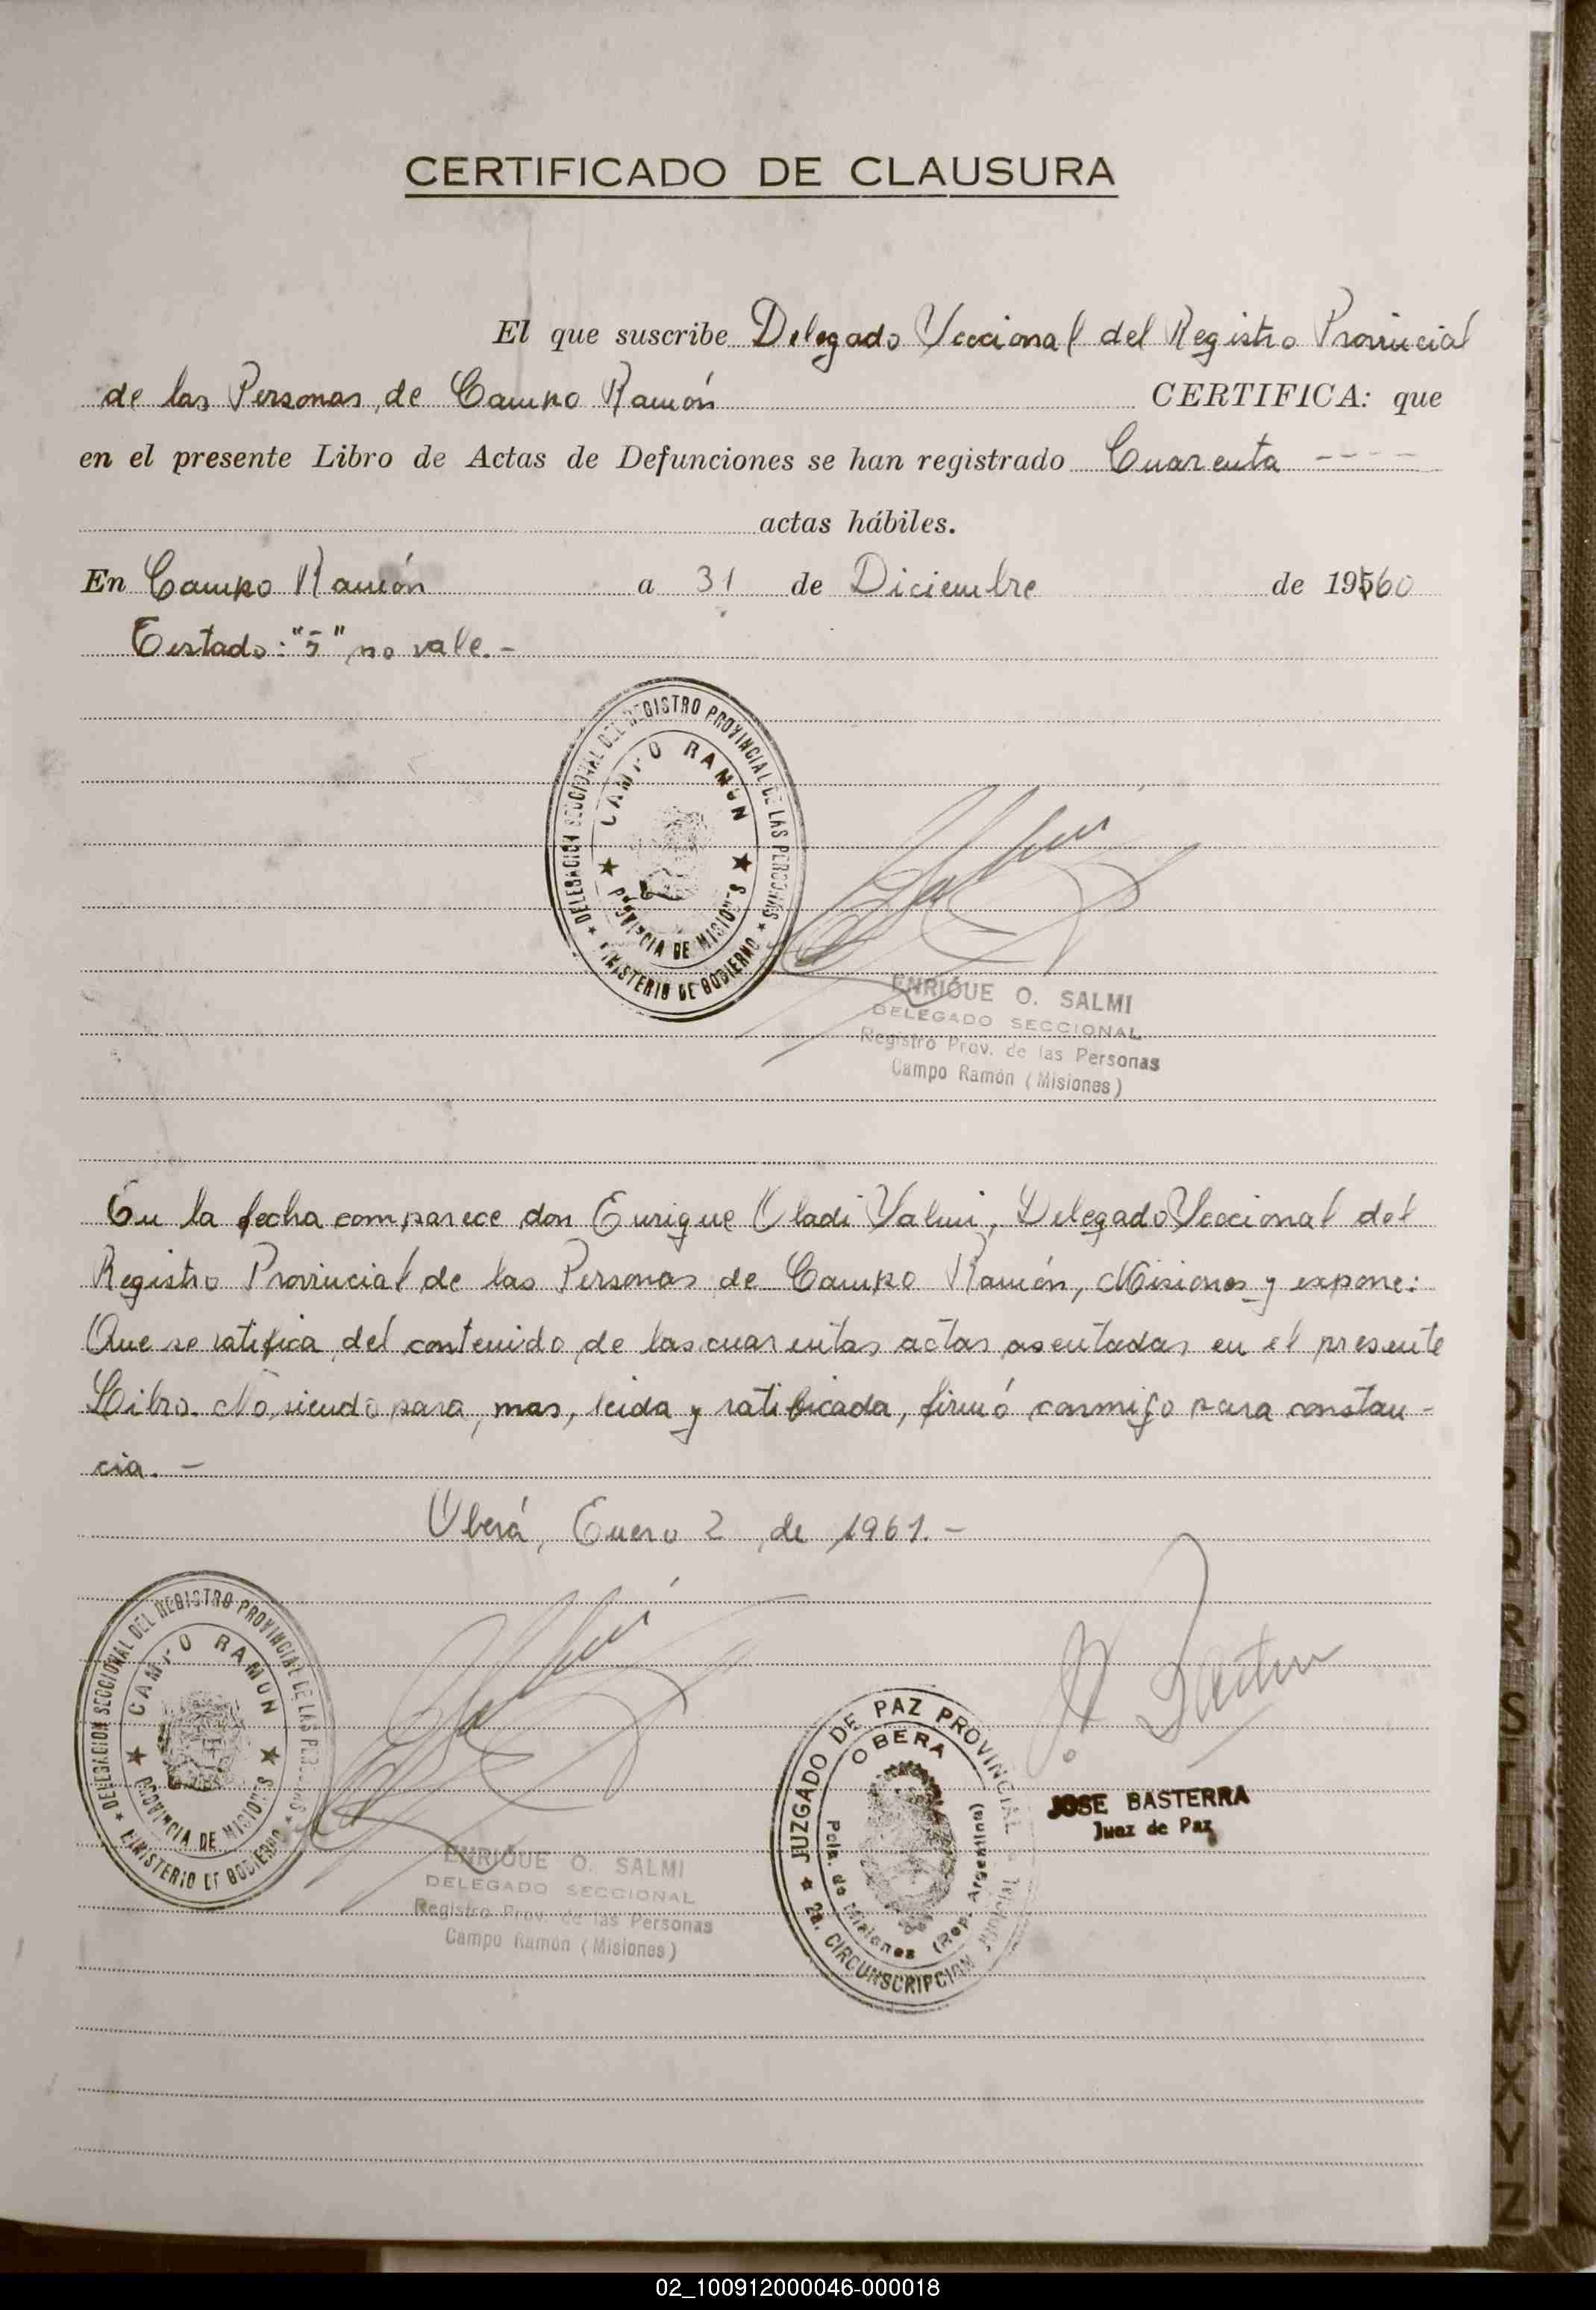 CERTIFICADO DE CLAUSURA
El que suscribe Delegado Seccional del Registro Provincial
de las Personas, de Campo Ramón CERTIFICA: que
en el presente Libro de Actas de Defunciones se han registrado Cuarenta ----
actas hábiles.
En Campo Ramón a 31 de Diciembre de 19560
Testado: "5" no vale.-
DELEGACION SECCIONAL DEL REGISTRO PROVINCIAL DE LAS PERSONAS
CAMPO RAMON
PROVINCIA DE MISIONES
MINISTERIO DE GOBIERNO
ENRIQUE O. SALMI
DELEGADO SECCIONAL
Registro Prov. de las Personas
Campo Ramón (Misiones)
En la fecha comparece don Enrique Oladi Salmi, Delegado Seccional del
Registro Provincial de las Personas de Campo Ramón, Misiones y expone:
Que se ratifica del contenido de las cuarentas actas asentadas en el presente
Libro. No siendo para mas, leida y ratificada, firmó conmigo para constan-
cia.-
Oberá, Enero 2 de 1961.-
DELEGACION SECCIONAL DEL REGISTRO PROVINCIAL DE LAS PERSONAS
CAMPO RAMON
PROVINCIA DE MISIONES
MINISTERIO DE GOBIERNO
ENRIQUE O. SALMI
DELEGADO SECCIONAL
Registro Prov. de las Personas
Campo Ramón (Misiones)
JUZGADO DE PAZ PROVINCIAL
OBERA
Pcia. de Misiones (Rep. Argentina)
2a. CIRCUNSCRIPCION JUDICIAL
JOSE BASTERRA
Juez de Paz
R
S
T
U
V
W
X
Y
Z
02_100912000046-000018